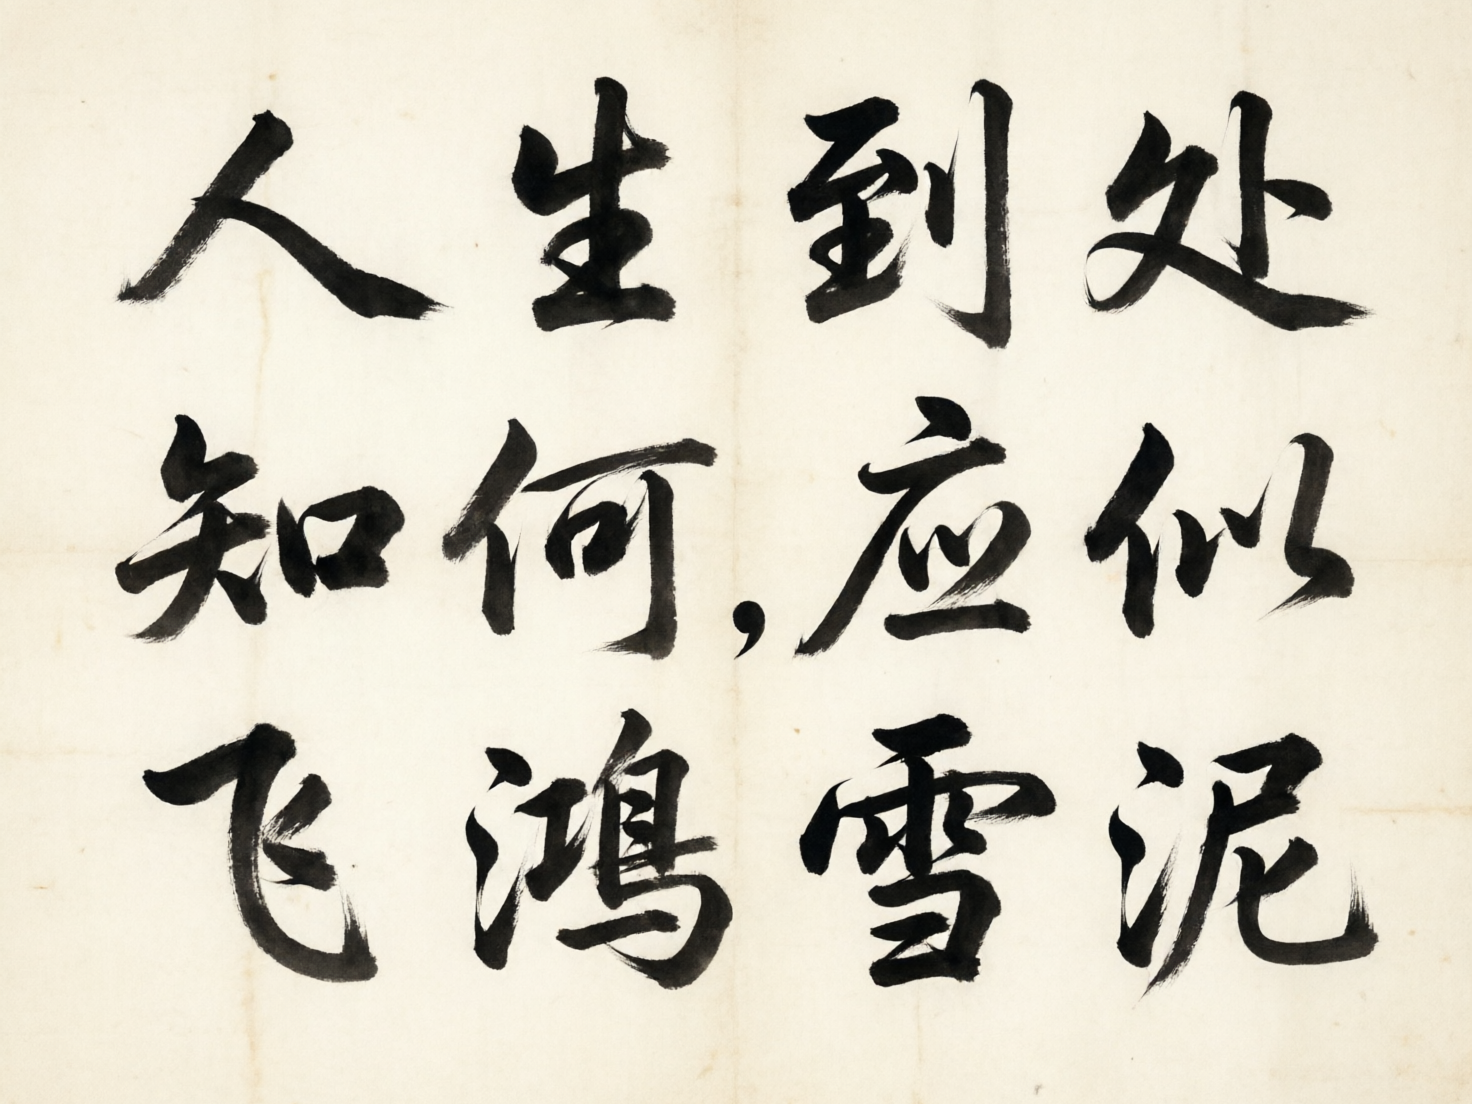 人生到处
知何,应似
飞鸿雪泥